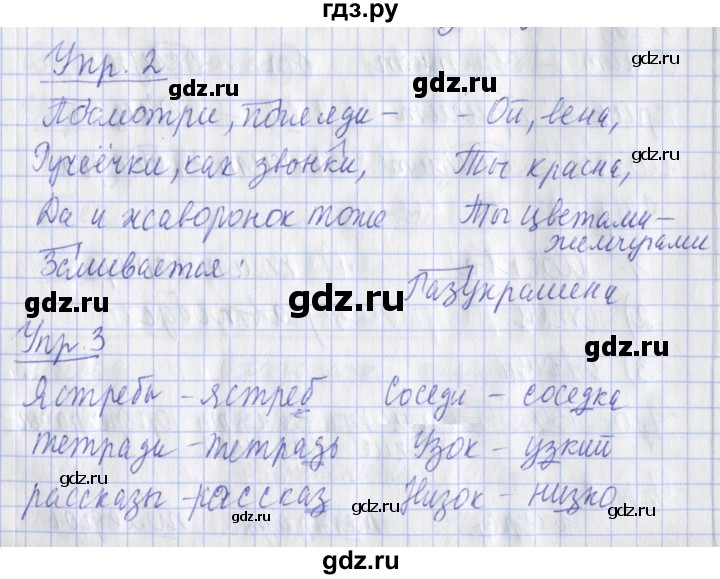 гдз.ру
Упр. 2
Посмотри, погляди –
Ручеёчки, как звонки,
Да и жаворонок тоже
Заливается:
– Ой, вена,
Ты красна,
Ты цветами –
жемчугами
Разукрашена
Упр. 3
Ястребы – ястреб
тетради – тетрадь
рассказы – рассказ
Соседи – соседка
Узок – узкий
Низок – низко
gdz.ru
gdz.ru
gdz.ru
gdz.ru
gdz.ru
gdz.ru
gdz.ru
gdz.ru
gdz.ru
gdz.ru
gdz.ru
gdz.ru
gdz.ru